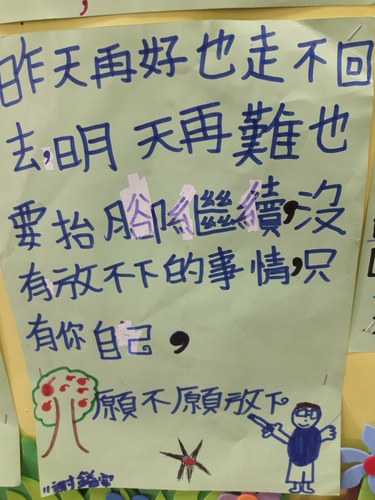 昨天再好也走不回
去,明天再難也
要抬腳繼續,沒
有放不下的事情,只
有你自己,
願不願放下